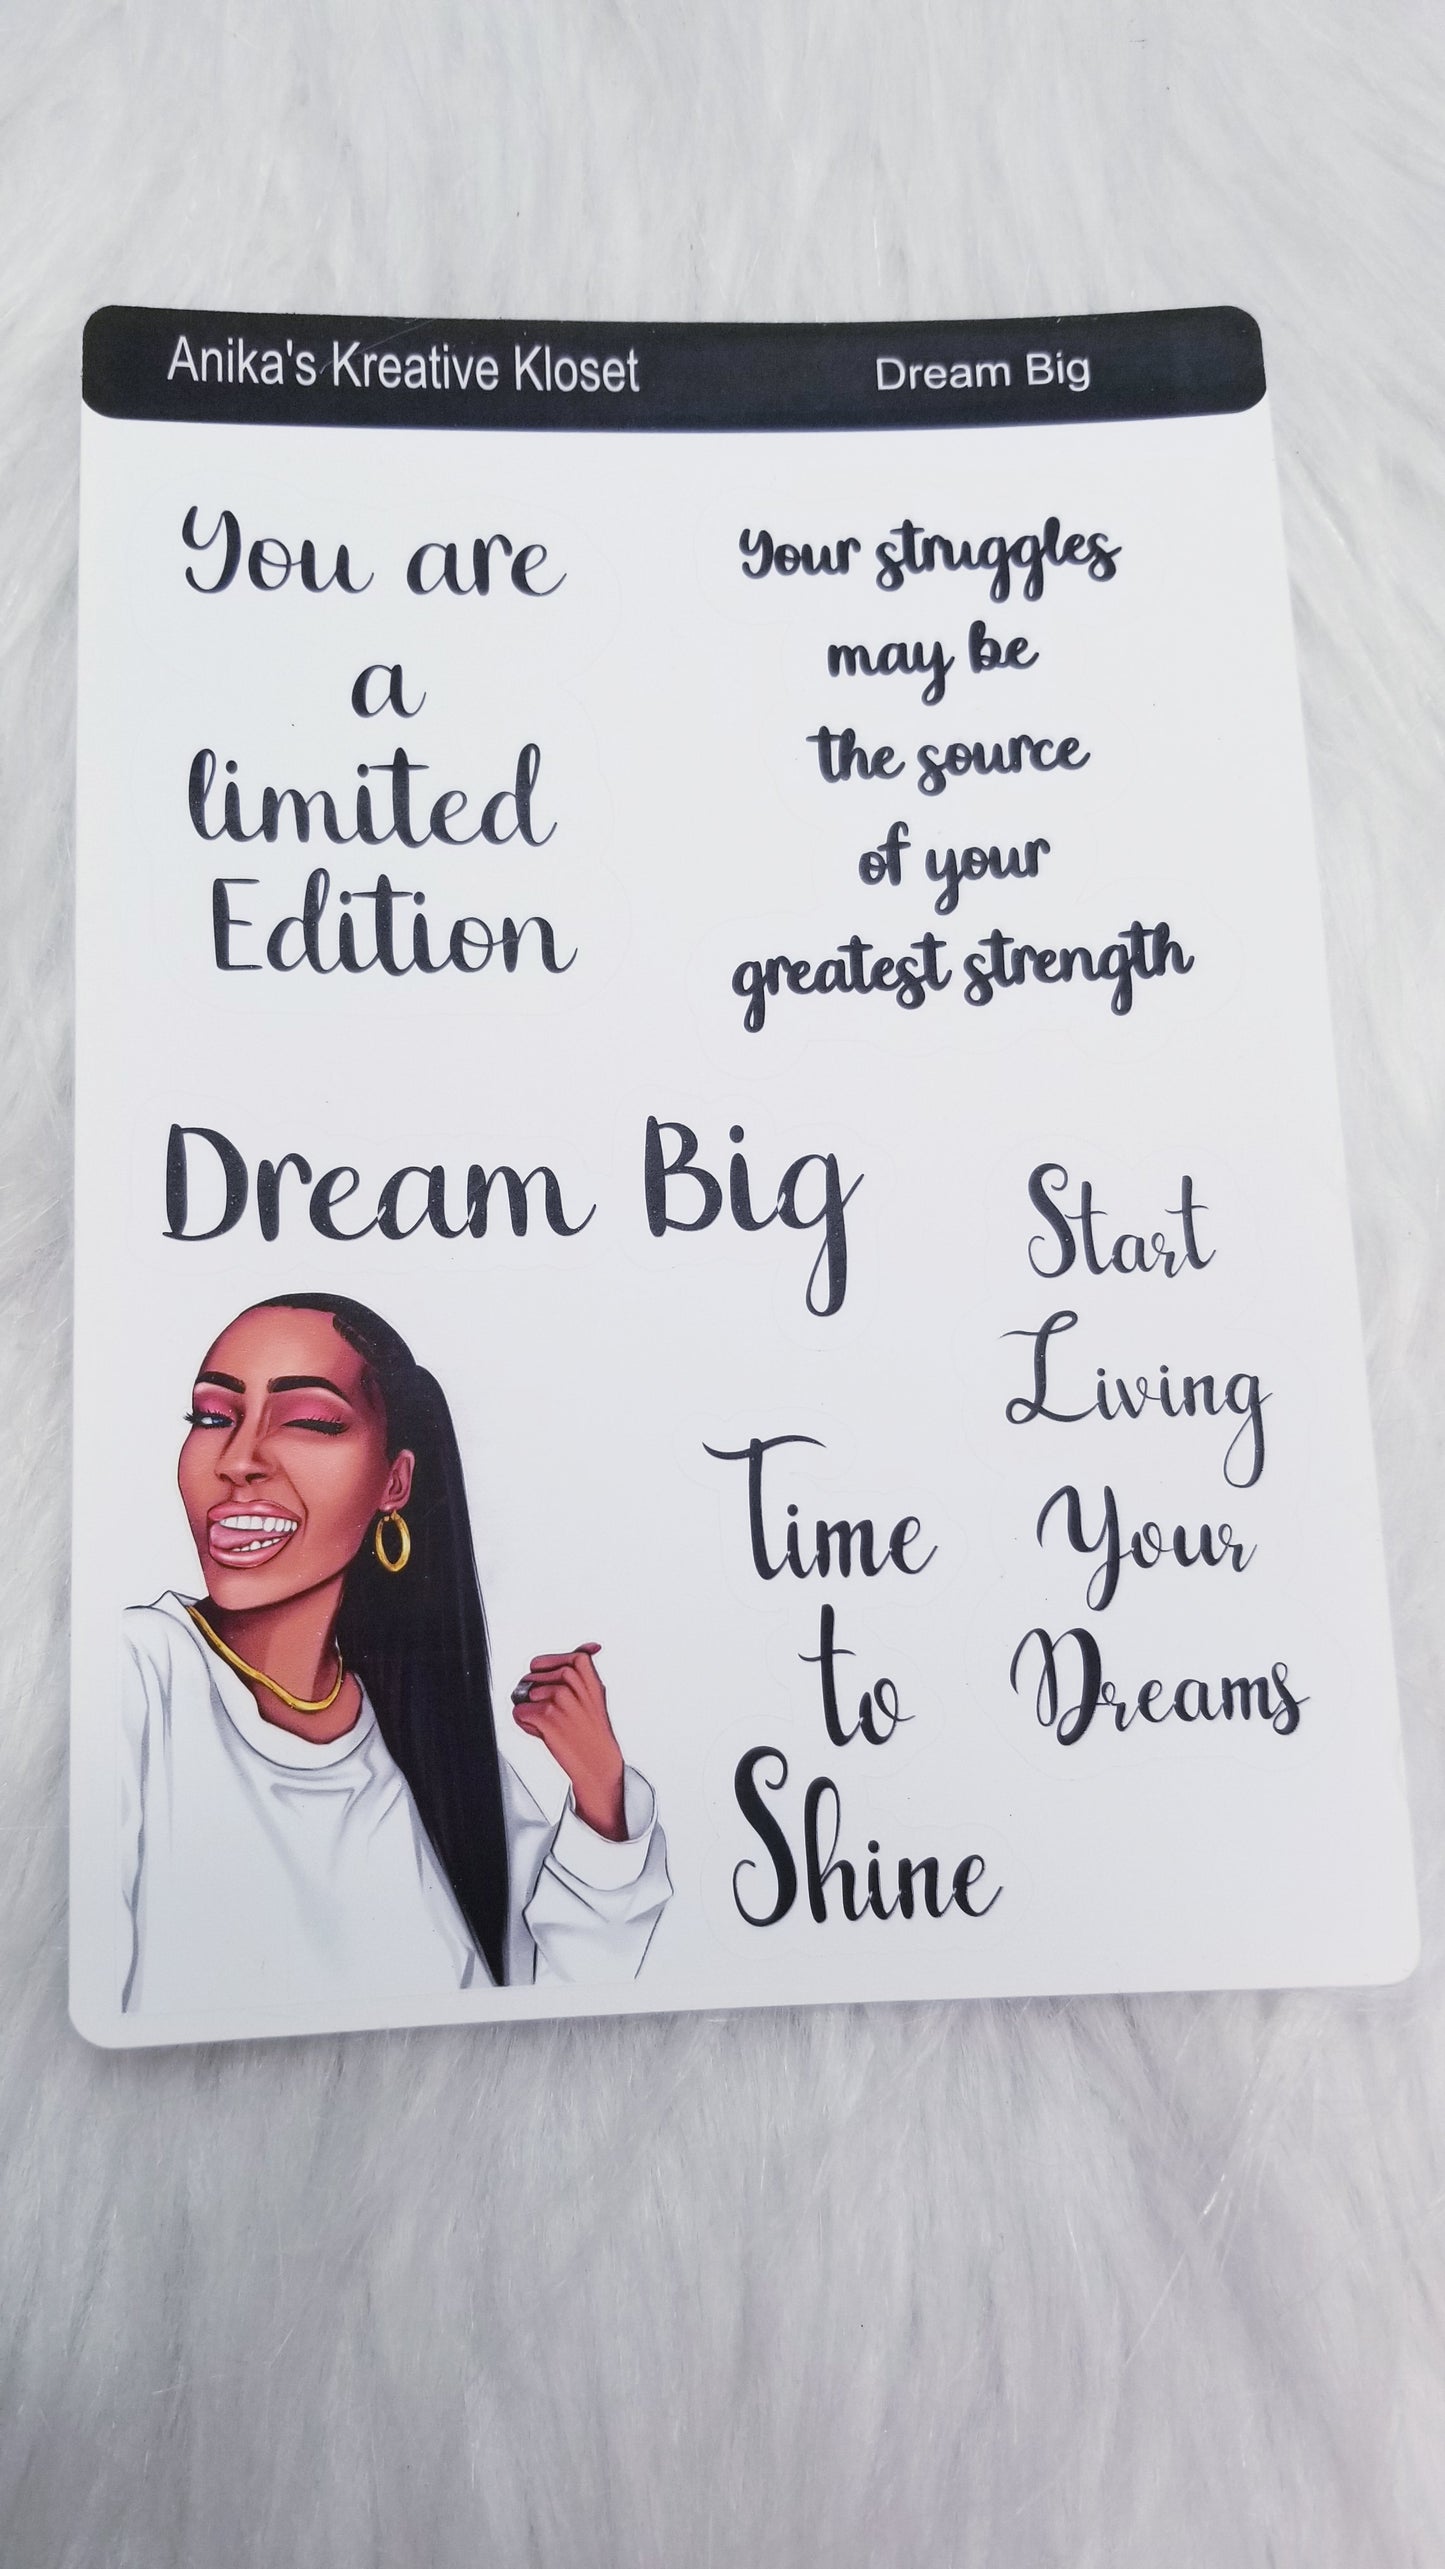 Anika's Kreative Kloset
Dream Big
You are
a
limited
Edition
your struggles
may be
the source
of your
greatest strength
Dream Big
Start
Living
Your
Dreams
Time
to
Shine